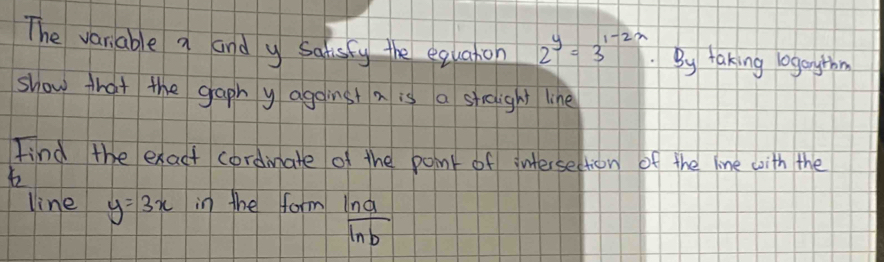 The variable x and y satisfy the equation 2^y = 3^{1-2x}. By taking logarythm
show that the gaph y against x is a straight line
Find the exact cordinate of the point of intersection of the line with the
line y=3x in the form \frac{\ln a}{\ln b}